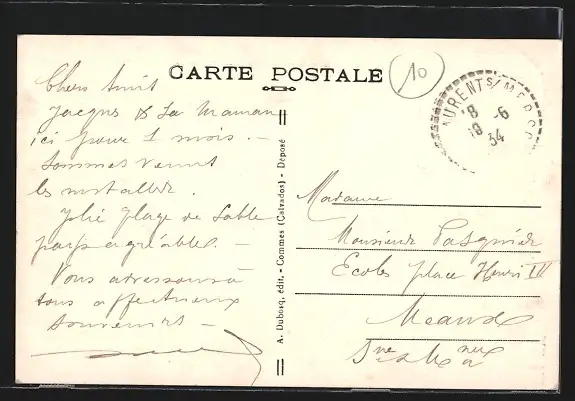 CARTE POSTALE
10
Chers Amis
Jacques & sa Maman
ici pour 1 mois. -
Sommes venus
les installer.
Jolie plage de sable
pays agréable. -
Vous adressons à
tous affectueux
souvenirs -
A. Dubosq, édit. - Commes (Calvados) - Déposé
AURENT S/MER
8 -6
19 34
Madame
Monsieur Pasquier
Ecoles place Henri IV
Meaux
Sne & Mne